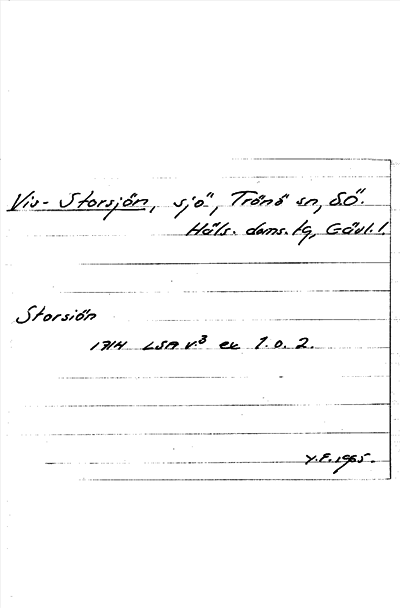 Vis-Storsjön, sjö, Trönö sn, SÖ.
Häls. doms.tg, Gävl.l.
Storsiön
1714 LSA V³ ex 1.o.2.
Y.F. 1965.